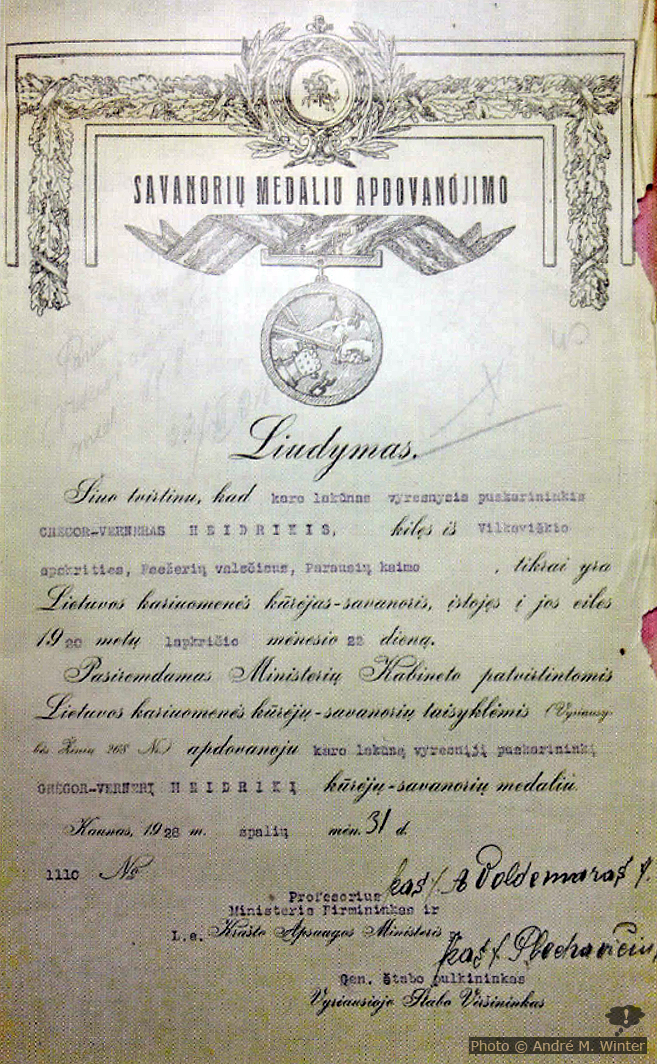 SAVANORIŲ MEDALIU APDOVANOJIMO
Liudymas.
Šiuo tvirtinu, kad karo lakūnas vyresnysis puskarininkis
GREGOR-VERNERAS HEIDRIKIS, kilęs iš Vilkaviškio
apskrities, Paežerių valsčiaus, Parausių kaimo , tikrai yra
Lietuvos kariuomenės kūrėjas-savanoris, įstojęs į jos eiles
1920 metų lapkričio mėnesio 22 dieną.
Pasiremdamas Ministerių Kabineto patvirtintomis
Lietuvos kariuomenės kūrėjų-savanorių taisyklėmis (Vyriausy-
bės Žinių 268 No) apdovanoju karo lakūną vyresnįjį puskarininkį
GREGOR-VERNERĮ HEIDRIKĮ kūrėjų-savanorių medaliu.
Kaunas, 1928 m. spalių mėn. 31 d.
1110 No
A Voldemaras
Profesorius
Ministeris Pirmininkas ir
L.e. Krašto Apsaugos Ministeris
Plechavičius
Gen. štabo pulkininkas
Vyriausiojo Štabo Viršininkas
Photo © André M. Winter